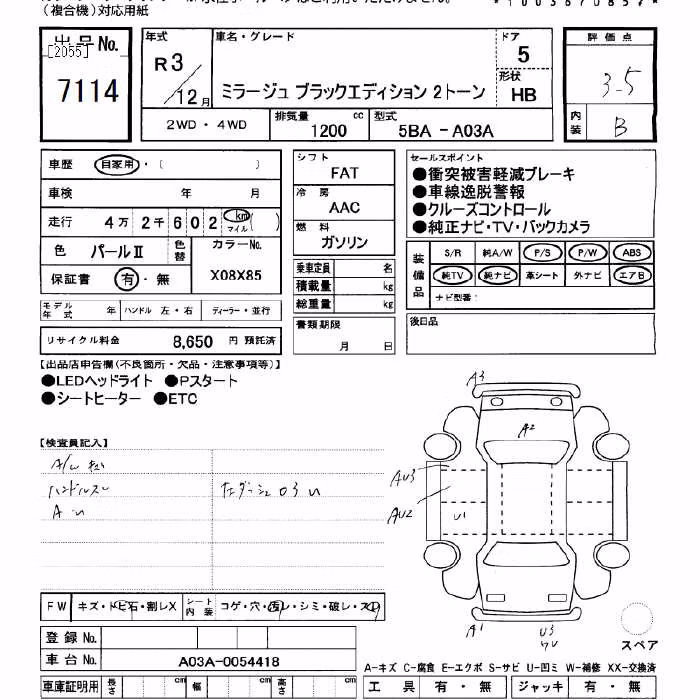 (複合機)対応用紙
出品No.
[2055]
7114
年式
R3/12月
車名・グレード
ミラージュ ブラックエディション 2トーン
ドア
5
形状
HB
評価点
3.5
内装
B
2WD・4WD
排気量 cc
1200
型式
5BA - A03A
車歴 自家用・( )
車検 年 月
走行 4万 2千 6 0 2 km マイル ( )
色 パールⅡ
色替
カラーNo.
X08X85
保証書 有・無
シフト
FAT
冷房
AAC
燃料
ガソリン
乗車定員 名
積載量 kg
総重量 kg
セールスポイント
●衝突被害軽減ブレーキ
●車線逸脱警報
●クルーズコントロール
●純正ナビ・TV・バックカメラ
装備品
S/R 純A/W P/S P/W ABS
純TV 純ナビ 革シート 外ナビ エアB
ナビ型番:
モデル年式 年 ハンドル 左・右 ディーラー・並行
リサイクル料金 8,650 円 預託済
書類期限
月 日
後日品
【出品店申告欄(不良箇所・欠品・注意事項等)】
●LEDヘッドライト ●Pスタート
●シートヒーター ●ETC
【検査員記入】
ハンドルスレ
A3
A2
AU3
AU2
U1
A1
U3
FW キズ・トビ石・割レX
シート内装 コゲ・穴・汚レ・シミ・破レ・スレ
登録No.
車台No. A03A-0054418
車庫証明用 長さ cm 幅 cm 高さ cm
スペア
A-キズ C-腐食 E-エクボ S-サビ U-凹ミ W-補修 XX-交換済
工具 有・無 ジャッキ 有・無